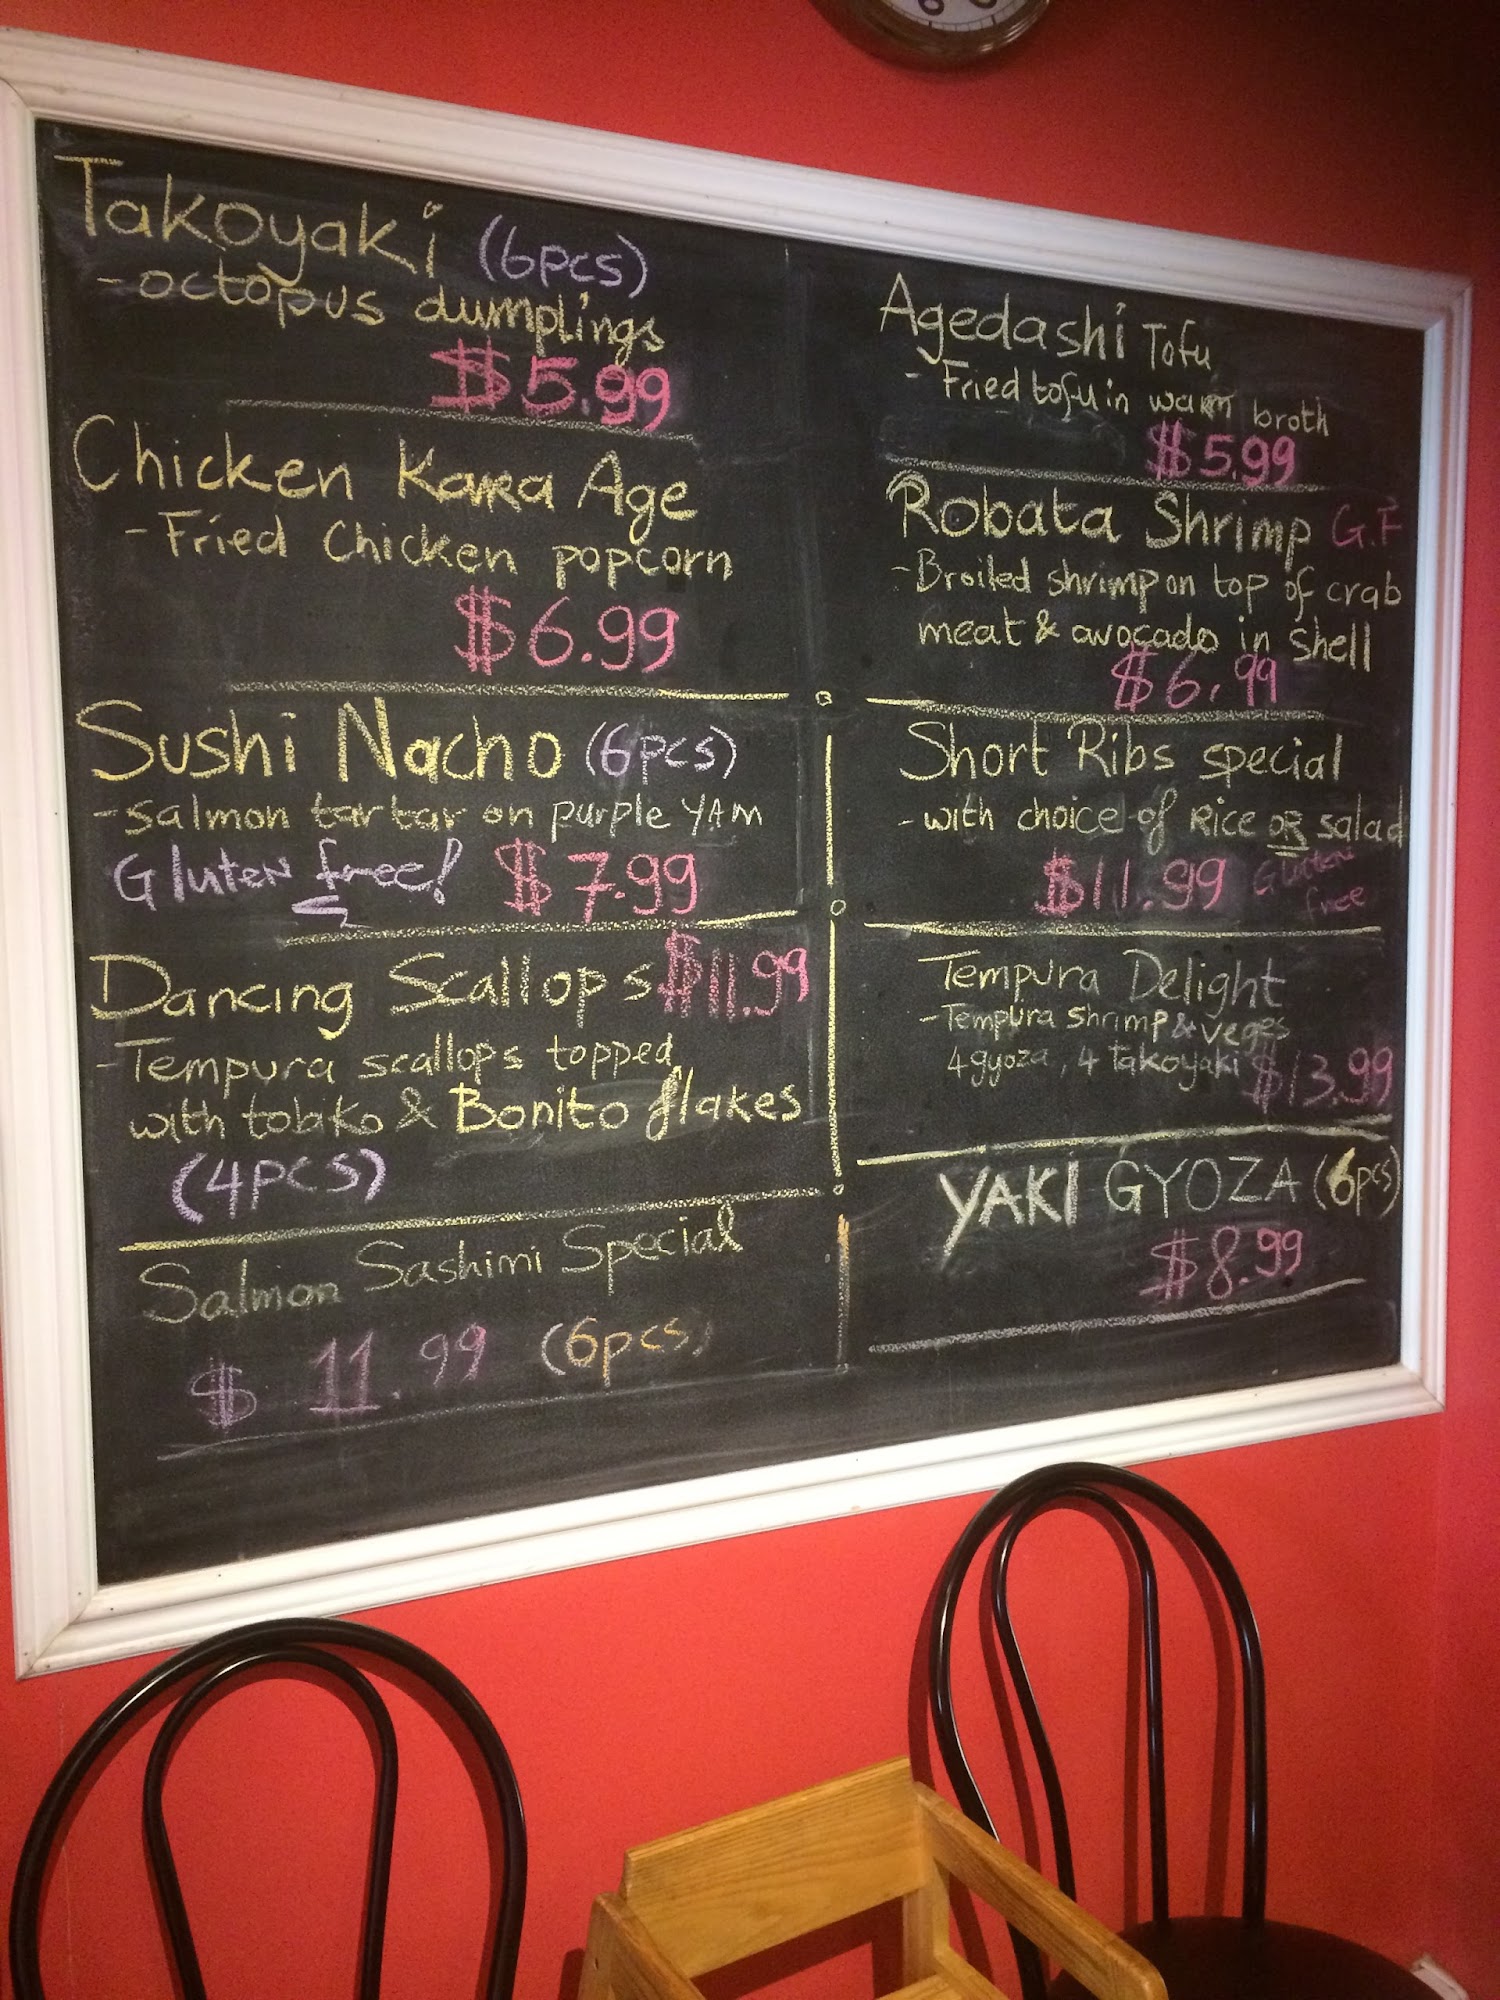 Takoyaki (6pcs)
-octopus dumplings
$5.99
Chicken Kara Age
-Fried Chicken popcorn
$6.99
Sushi Nacho (6pcs)
-salmon tartar on purple YAM
Gluten free! $7.99
Dancing Scallops $11.99
-Tempura scallops topped
with tobiko & Bonito flakes
(4PCS)
Salmon Sashimi Special
$11.99 (6pcs)
Agedashi Tofu
- Fried tofu in warm broth
$5.99
Robata Shrimp G.F
-Broiled shrimp on top of crab
meat & avocado in shell
$6.99
Short Ribs special
-with choice of Rice OR salad
$11.99 Gluten
free
Tempura Delight
-Tempura shrimp & veges
4 gyoza, 4 takoyaki $13.99
YAKI GYOZA (6pcs)
$8.99